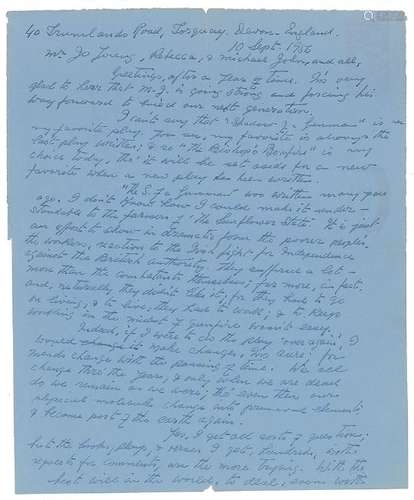 40 Trumlands Road, Torquay, Devon. England.
10 Sept. 1956
Mr. Jo Young, Rebecca, & Michael John, and all,
Greetings, after a year of time. I'm very
glad to hear that M.J. is going strong and forcing his
way forward to build our next generation.
I can't say that "Shadow of a Gunman" is
my favorite play. You see, my favorite is always the
last play written, & so "The Bishop's Bonfire" is my
choice today, tho' it will be set aside for a new
favorite when a new play has been written.
"The S. of a Gunman" was written many years
ago. I don't know how I could make it under-
standable to the farmers of 'the Sunflower State'. It is just
an effort to show in dramatic form the poorer people,
the workers, reactions to the Irish fight for Independence
against the British authority. They suffered a lot —
more than the combatants themselves; far more, in fact.
and, naturally, they didn't like it; for they had to go
on living, & to live, they had to work; & to keep
working in the midst of gunfire wasn't easy.
Indeed, if I were to do the play 'over again', I
would make changes, I'm sure; for
minds change with the passing of time. We all
change thro' the years, & only when we are dead
do we remain as we were; tho' even then our
physical molecules change into primeval elements
& become part of the earth again.
Yes, I get all sorts of questions;
but the books, plays, & verses I get, hundreds, with
requests for comments, are the more trying. With the
best will in the world, to deal, even with